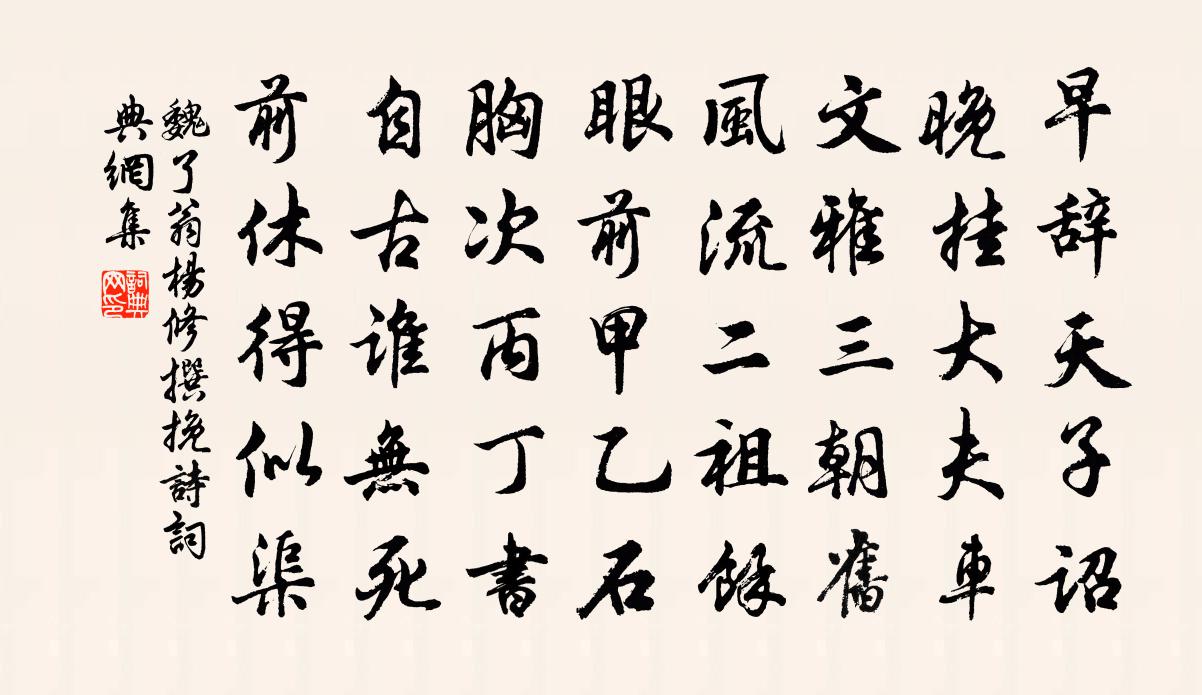 早辞天子詔
晚挂大夫車
文雅三朝舊
風流二祖餘
眼前甲乙石
胸次丙丁書
自古誰無死
前休得似渠
魏了翁楊修撰挽詩詞
典網集
詞典
网印